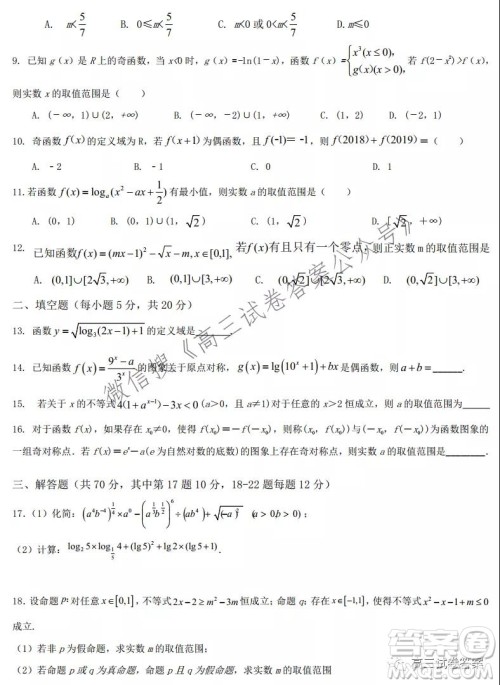 A. m<5/7 B. 0≤m<5/7 C. m<0 或 0<m<5/7 D.m≤0
9. 已知 g(x) 是 R 上的奇函数，当 x<0 时，g(x)=-ln(1-x)，函数 f(x)={x³(x≤0), g(x)(x>0), 若 f(2-x²)>f(x)，
则实数 x 的取值范围是（ ）
A. (-∞,1)∪(2，+∞) B. (-∞，-2)∪(1，+∞) C. (1，2) D. (-2，1)
10. 奇函数 f(x) 的定义域为 R，若 f(x+1) 为偶函数，且 f(-1)=-1，则 f(2018)+f(2019)=（ ）
A. -2 B. -1 C. 0 D. 1
11.若函数 f(x)=logₐ(x²-ax+1/2) 有最小值，则实数 a 的取值范围是（ ）
A. (0，1) B. (0,1)∪(1,√2) C. (1,√2) D. [√2,+∞)
12. 已知函数f(x)=(mx-1)²-√x-m,x∈[0,1],若f(x)有且只有一个零点，则正实数 m 的取值范围是
A. (0,1]∪[2√3,+∞) B. (0,1]∪[3,+∞) C. (0,√2]∪[2√3,+∞) D. (0,√2]∪[3,+∞)
二、填空题（每小题 5 分，共 20 分）
13. 函数 y=√(log₃(2x-1)+1) 的定义域是
14. 已知函数 f(x)=(9ˣ-a)/3ˣ 的图象关于原点对称，g(x)=lg(10ˣ+1)+bx 是偶函数，则 a+b=______.
15. 若关于 x 的不等式 4(1+aˣ⁻¹)-3x<0（a>0，且 a≠1）对于任意的 x>2 恒成立，则 a 的取值范围为______
16. 对于函数 f(x)，如果存在 x₀≠0，使得 f(x₀)=-f(-x₀)，则称(x₀,f(x₀))与(-x₀,f(-x₀))为函数图象的
一组奇对称点．若 f(x)=eˣ-a(e 为自然对数的底数)的图象上存在奇对称点，则实数 a 的取值范围是______．
三、解答题（共 70 分，其中第 17 题 10 分，18-22 题每题 12 分）
（2）计算：log₂5×log_(1/5)4+(lg5)²+lg2×(lg5+1).
18.设命题 p:对任意 x∈[0,1]，不等式 2x-2≥m²-3m 恒成立；命题 q：存在 x∈[-1,1]，使得不等式 x²-x-1+m≤0
成立．
（1）若非 p 为假命题，求实数 m 的取值范围；
（2）若命题 p或q为真命题，命题 p且q为假命题，求实数 m 的取值范围
微信搜《高三试卷答案公众号》
高三试卷答案